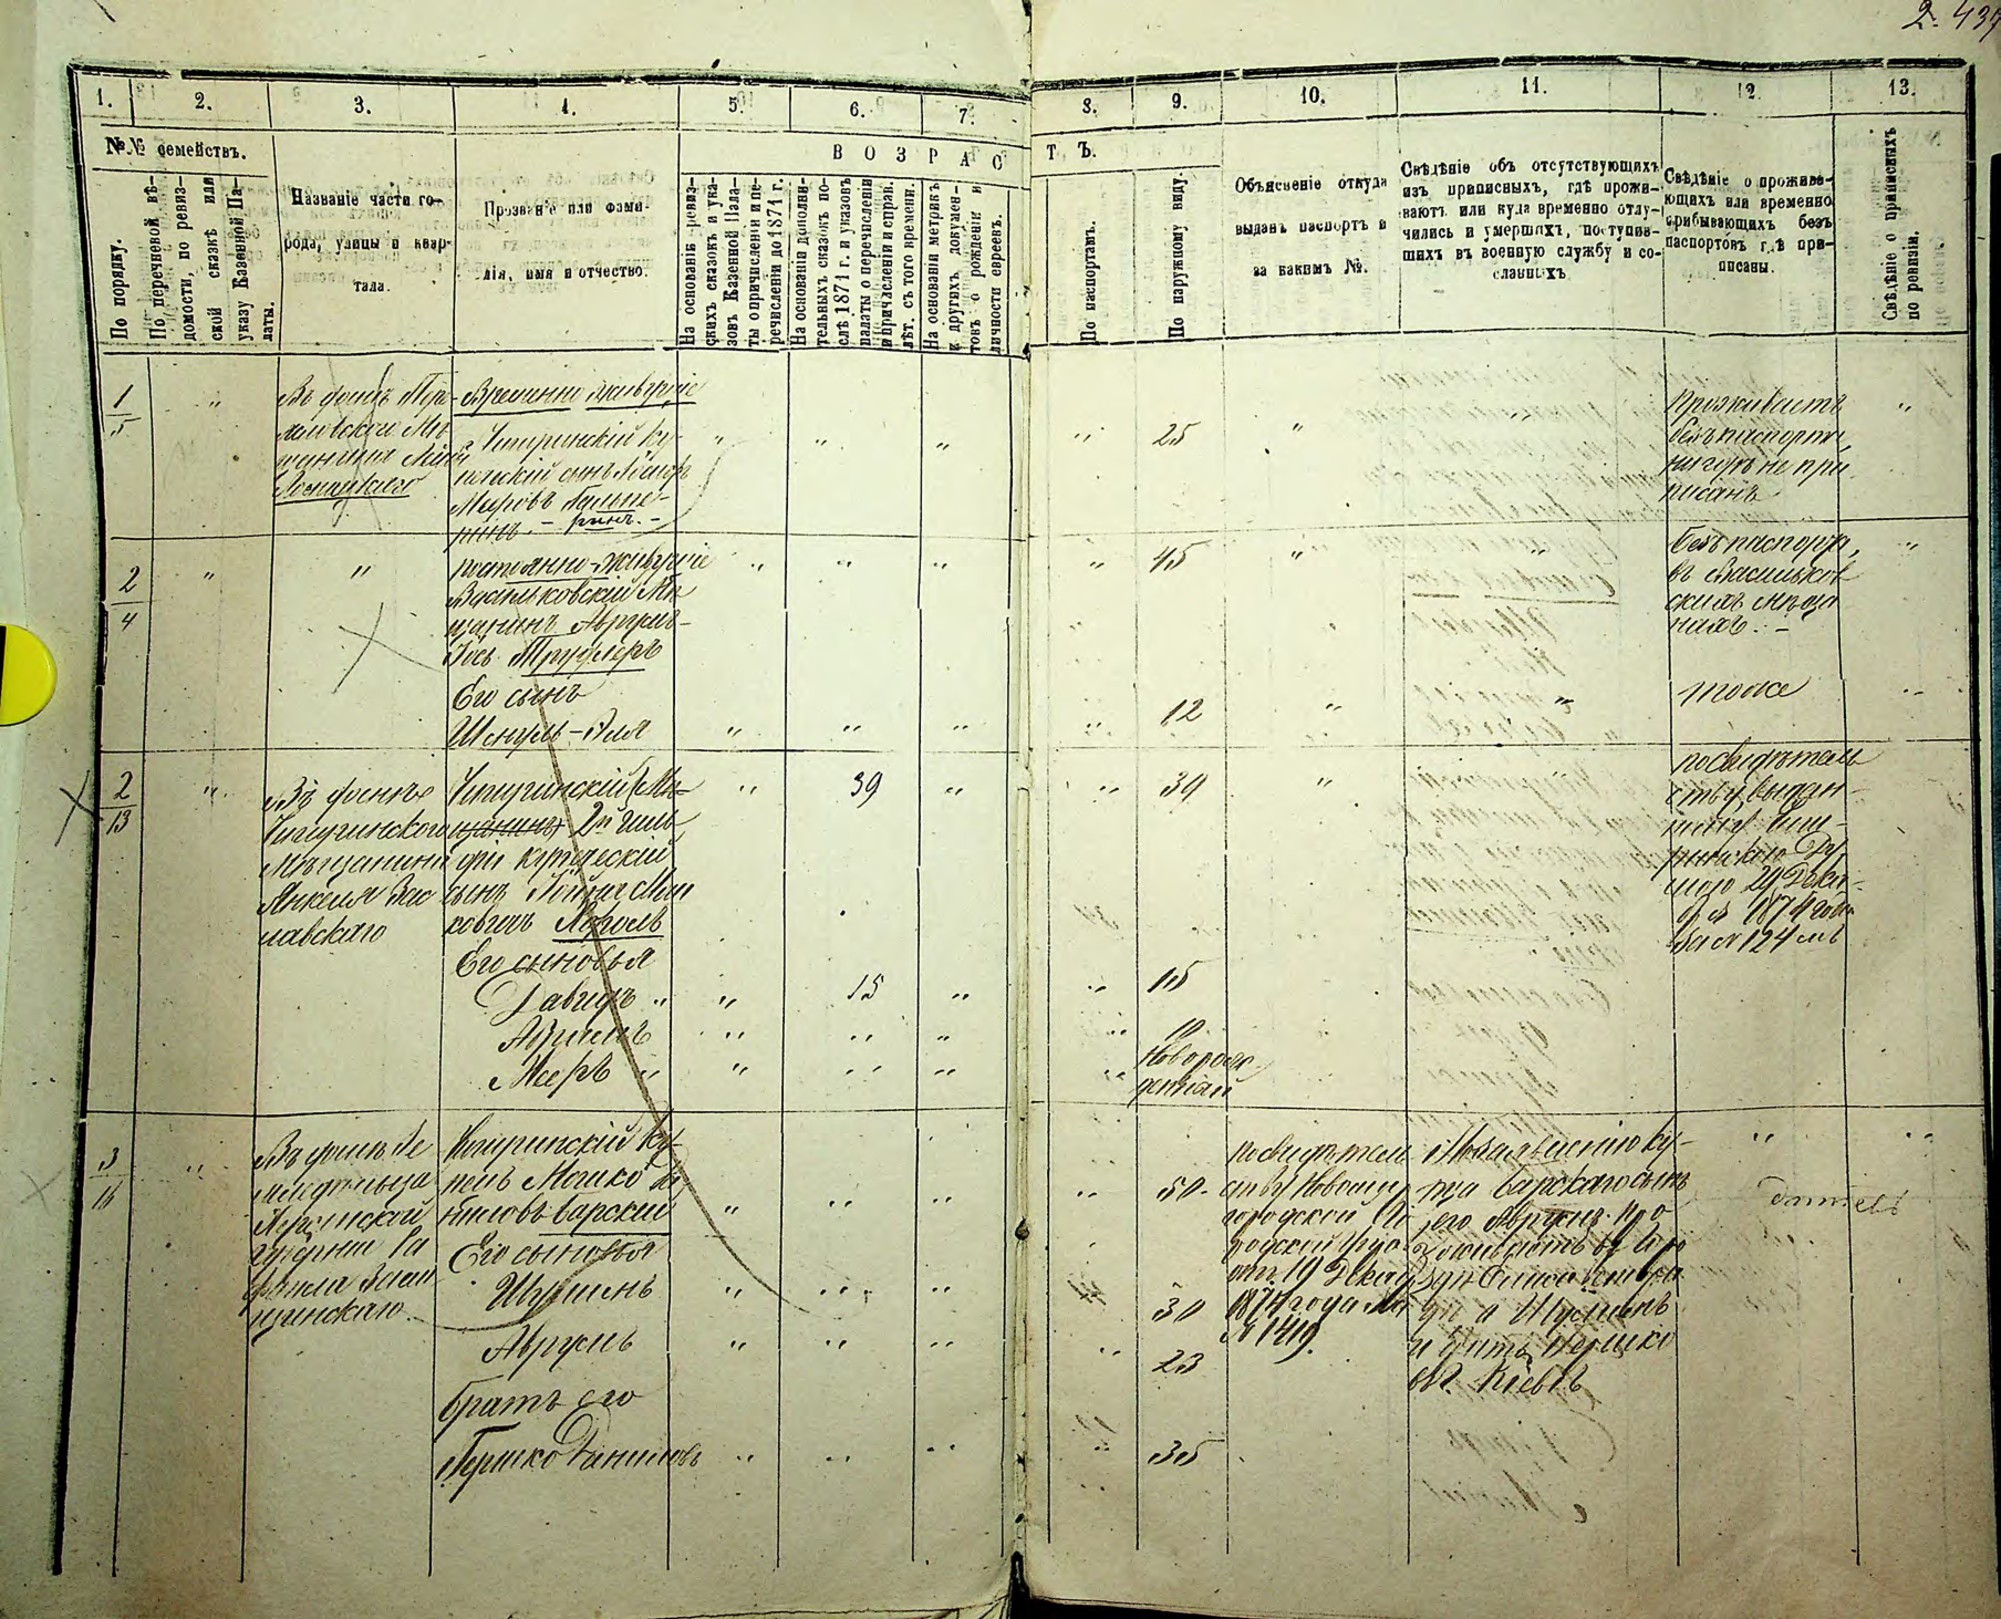 2. 437
1.
2.
3.
4.
5.
6.
7.
8.
9.
10.
11.
12
13.
№№ семействъ.
ВОЗРАСТЪ.
По порядку.
По перечневой вѣ-
домости, по ревиз-
ской сказкѣ или
указу Казенной Па-
латы.
Названіе части го-
рода, улицы и квар-
тала.
Прозваніе или фами-
лія, имя и отчество.
На основаніи ревиз-
скихъ сказокъ и ука-
зовъ Казенной Пала-
ты о причисленіи и пе-
речисленіи до 1871 г.
На основаніи дополни-
тельныхъ сказокъ по-
слѣ 1871 г. и указовъ
палаты о перечисленіи
и причисленіи и справ.
лѣт. съ того времени.
На основаніи метрикъ
и другихъ докумен-
товъ о рожденіи и
личности евреевъ.
По паспортамъ.
По наружному виду.
Объясненіе откуда
выданъ паспортъ и
за какимъ №.
Свѣдѣніе объ отсутствующихъ
изъ приписныхъ, гдѣ прожи-
ваютъ или куда временно отлу-
чились и умершихъ, поступив-
шихъ въ военную службу и со-
сланныхъ.
Свѣдѣніе о прожива-
ющихъ или временно
прибывающихъ безъ
паспортовъ гдѣ при-
писаны.
Свѣдѣніе о приписныхъ
по ревизіи.
1/5
Въ домѣ
Временно живущіе
Чигиринскій ку-
печескій сынъ
Меировъ Гальпе-
ринъ - ринъ. -
25
Проживаетъ
безъ паспорта,
нигдѣ не при-
писанъ
2/4
постоянно живущіе
Васильковскій Мѣ
щанинъ Аврумъ-
Іосъ Трудлеръ
45
безъ паспорта,
въ Васильков
скихъ мѣща
нахъ. -
Его сынъ
Шмуль-Эля
12
тоже
2/13
Въ домѣ
Чигиринского
Мѣщанина
Янкеля Зас
лавскаго
Чигиринскій Мѣ-
щанинъ 2й гиль
діи купеческій
сынъ
ковичъ Король
39
39
по свидѣтель
ству, выдан-
ному Чиги-
ринскою Ду
мою 29 Дека-
бря 1874 года
за № 124 мъ
Его сыновья
Давидъ
15
15
10
Меръ
Новорож
денный
3/16
Въ домѣ
Херсонской
губерніи Ра
фаила
Чигиринскій Ку-
пецъ Мошко Да
ниловъ Барскій
50
по свидѣтель
ству Новомир
городской Го
родской Управы
отъ 19 Декабря
1874 года за
№ 1419.
По заявленію ку-
пца Барскаго сынъ
его Аврумъ про
живаетъ въ Горо
дѣ
а Шуменъ
и братъ Гершко
въ г. Кіевѣ
Daniels
Его сыновья
Шуменъ
30
Аврумъ
23
братъ его
Гершко Даниловъ
35